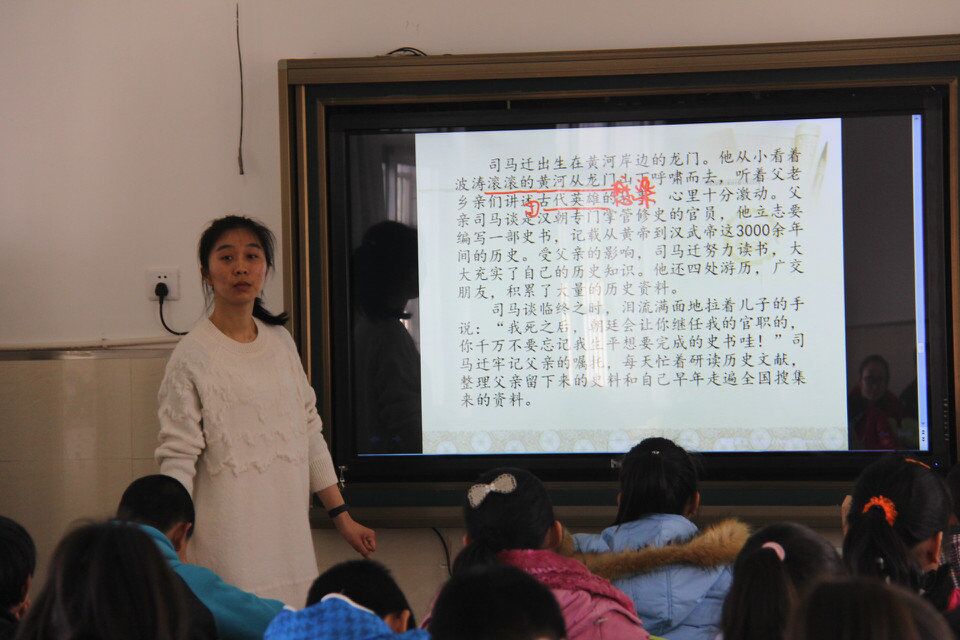 司马迁出生在黄河岸边的龙门。他从小看着
波涛滚滚的黄河从龙门山下呼啸而去，听着父老
乡亲们讲述古代英雄的 心里十分激动。父
感染
①
亲司马谈是汉朝专门掌管修史的官员，他立志要
编写一部史书，记载从黄帝到汉武帝这3000余年
间的历史。受父亲的影响，司马迁努力读书，大
大充实了自己的历史知识。他还四处游历，广交
朋友，积累了大量的历史资料。
司马谈临终之时，泪流满面地拉着儿子的手
说：“我死之后，朝廷会让你继任我的官职的，
你千万不要忘记我生平想要完成的史书哇！”司
马迁牢记父亲的嘱托，每天忙着研读历史文献，
整理父亲留下来的史料和自己早年走遍全国搜集
来的资料。